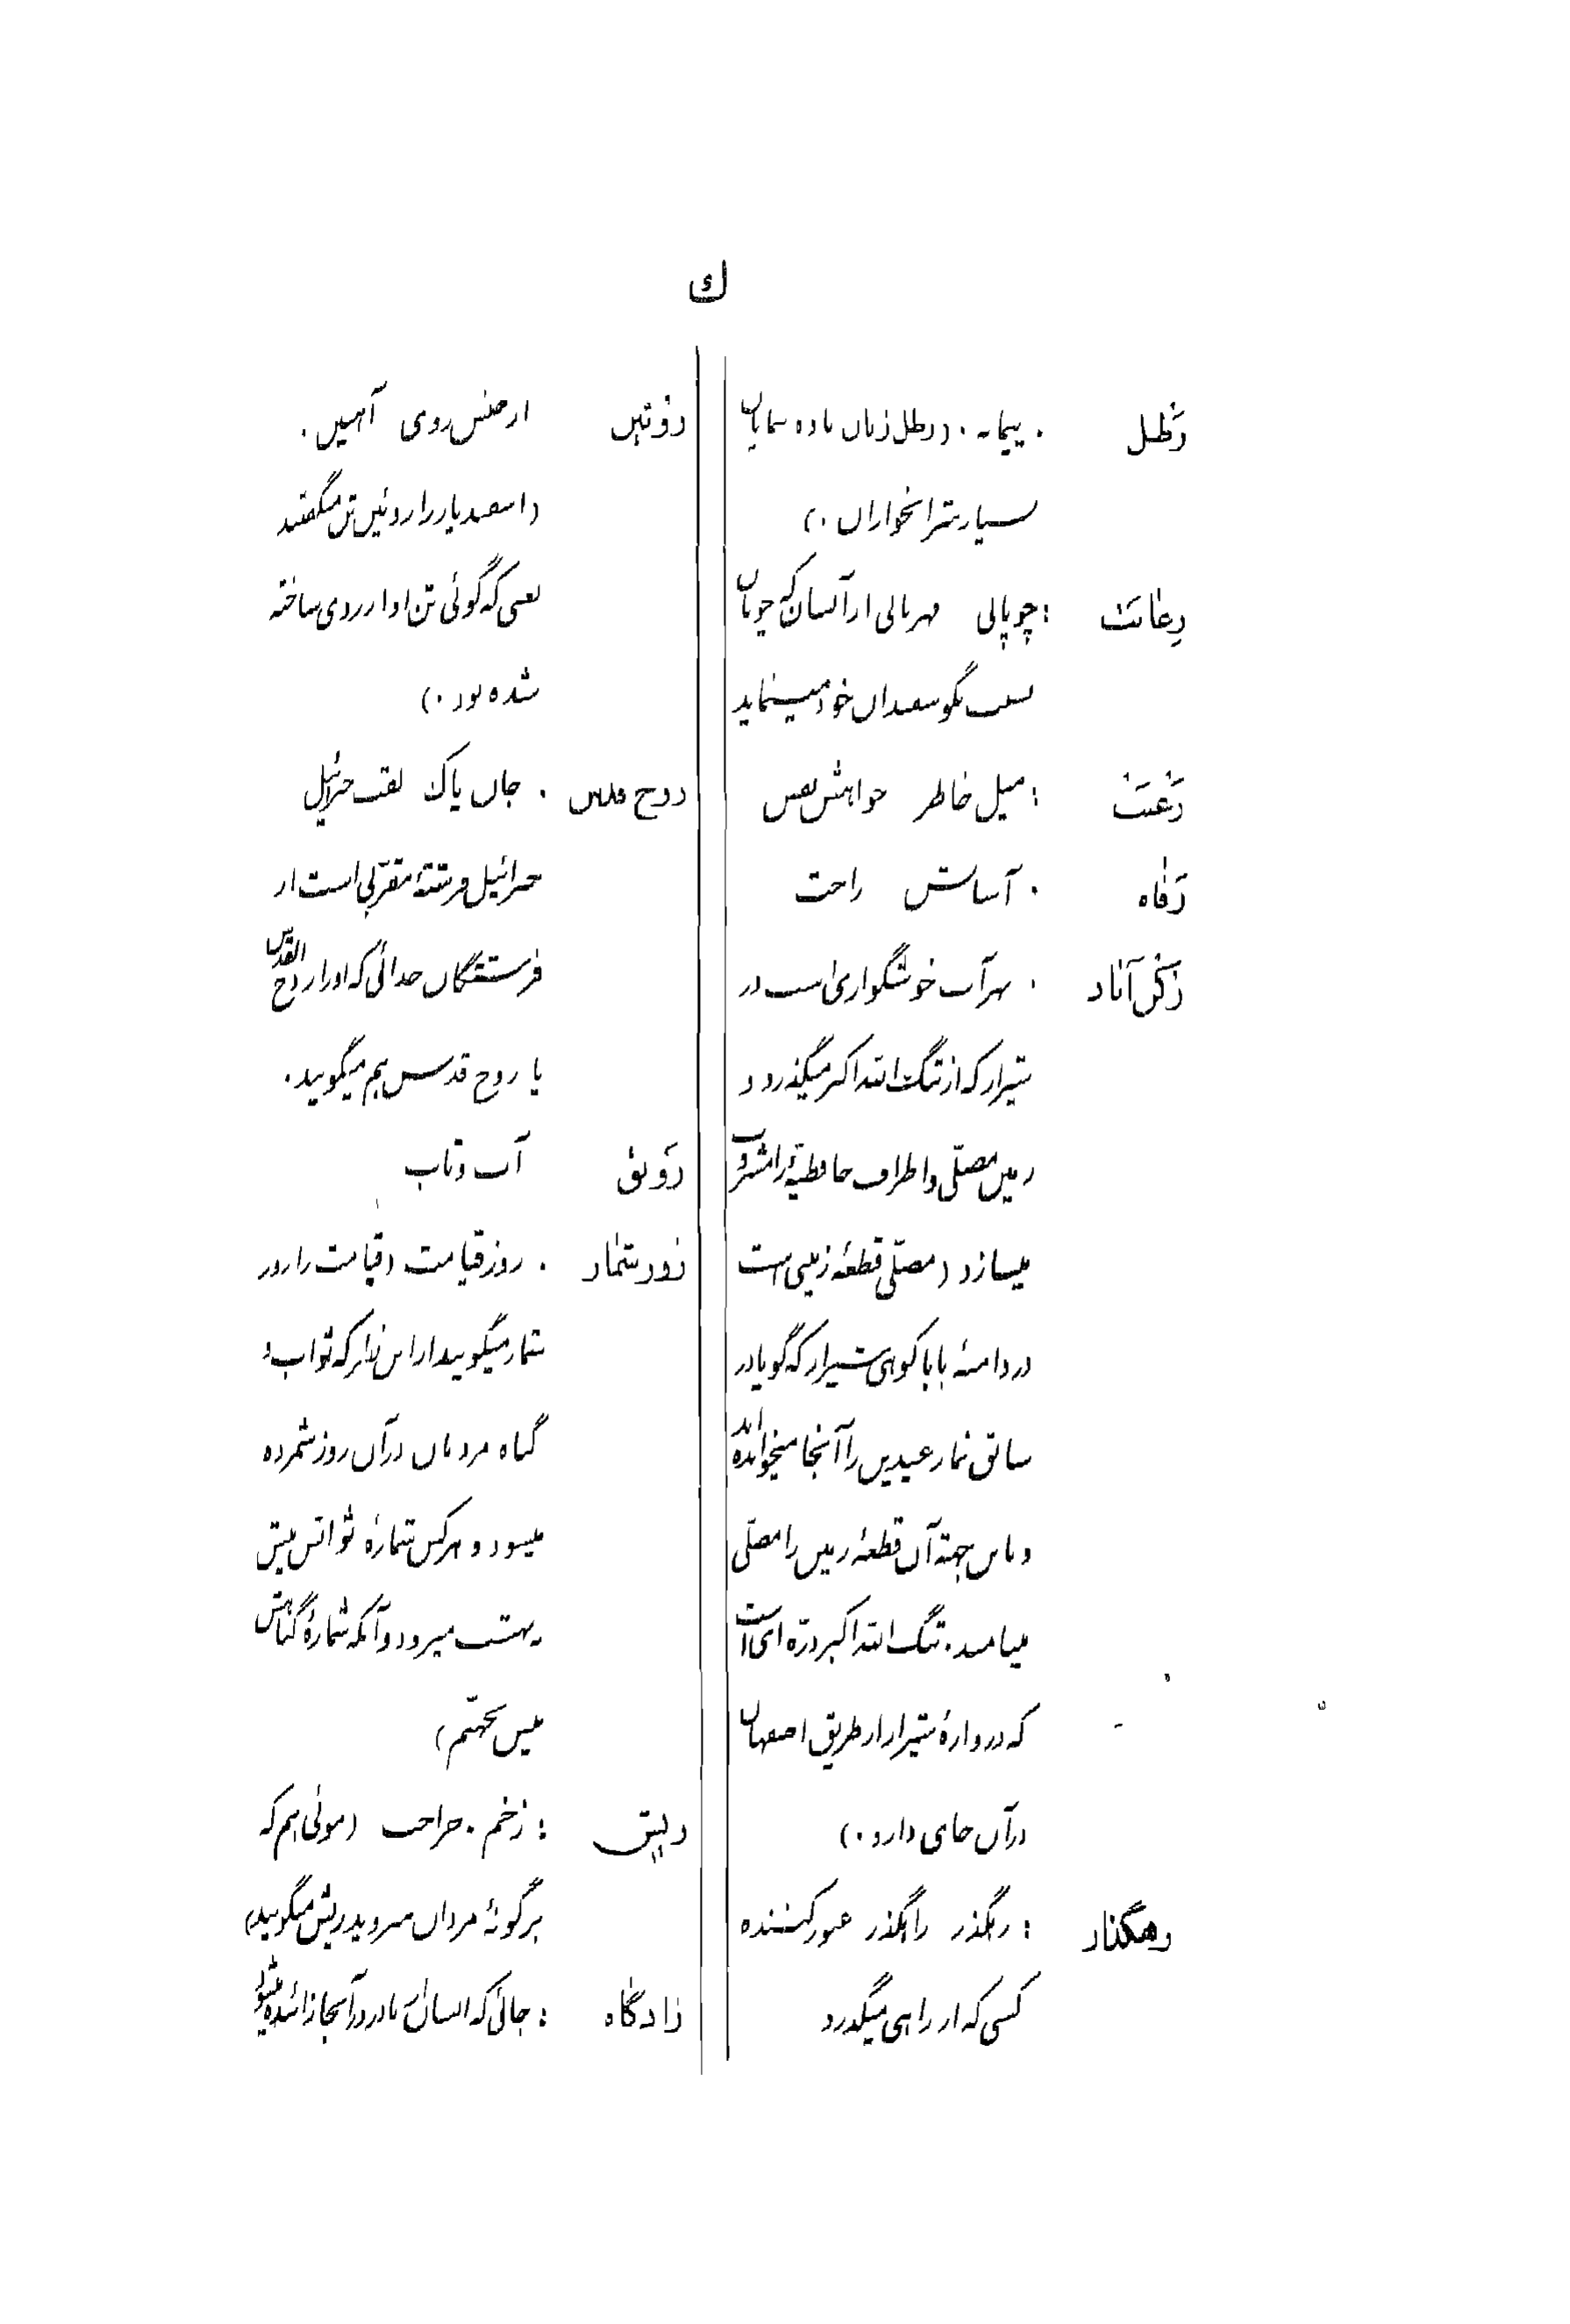 ك
رَطل : پیمانه . (رطل زنان باده پیمایان
بسیار شرابخواران .)
رِعایَت : چوپانی مهربانی از آنسان که چوپان
نسبت بگوسفندان خود مینماید
رَغبَت : میل خاطر خواهش نفس
رَفاه : آسایش راحت
رُکن آباد : نهر آب خوشگواری است در
شیراز که از تنگ الله اکبر میگذرد و
زمین مصلّی و اطراف حافظیّه را مشروب
میسازد (مصلّی قطعهٔ زمینی است
در دامنهٔ بابا کوهی شیراز که گویا در
سابق نماز عیدین را آنجا میخوانده اند
و باین جهة آن قطعهٔ زمین را مصلّی
مینامند . تنگ الله اکبر درّه ای است
که دروازهٔ شیراز از طریق اصفهان
در آن جای دارد .)
رهگذار : رهگذر راهگذر عبور کننده
کسی که از راهی میگذرد
روئین از جنس روی آهنین .
(اسفندیار را روئین تن میگفتند
یعنی که گوئی تن او از روی ساخته
شده بود .)
روح قدس : جان پاک لقب جبرائیل
جبرائیل فرشتهٔ مقرّبی است از
فرشتگان خدائی که او را روح القدس
یا روح قدس هم میگویند .
رَونق آب و تاب
روز شمار : روز قیامت (قیامت را روز
شمار میگویند از این نظر که ثواب و
گناه مردمان در آن روز شمرده
میشود و هر کس شمارهٔ ثوابش بیش
بهشت میرود و آنکه شمارهٔ گناهش
بیش بجهنّم)
ریش : زخم . جراحت (موئی هم که
بر گونهٔ مردان میروید ریش میگویند)
زادگاه : جائی که انسان از مادر در آنجا زائیده میشود